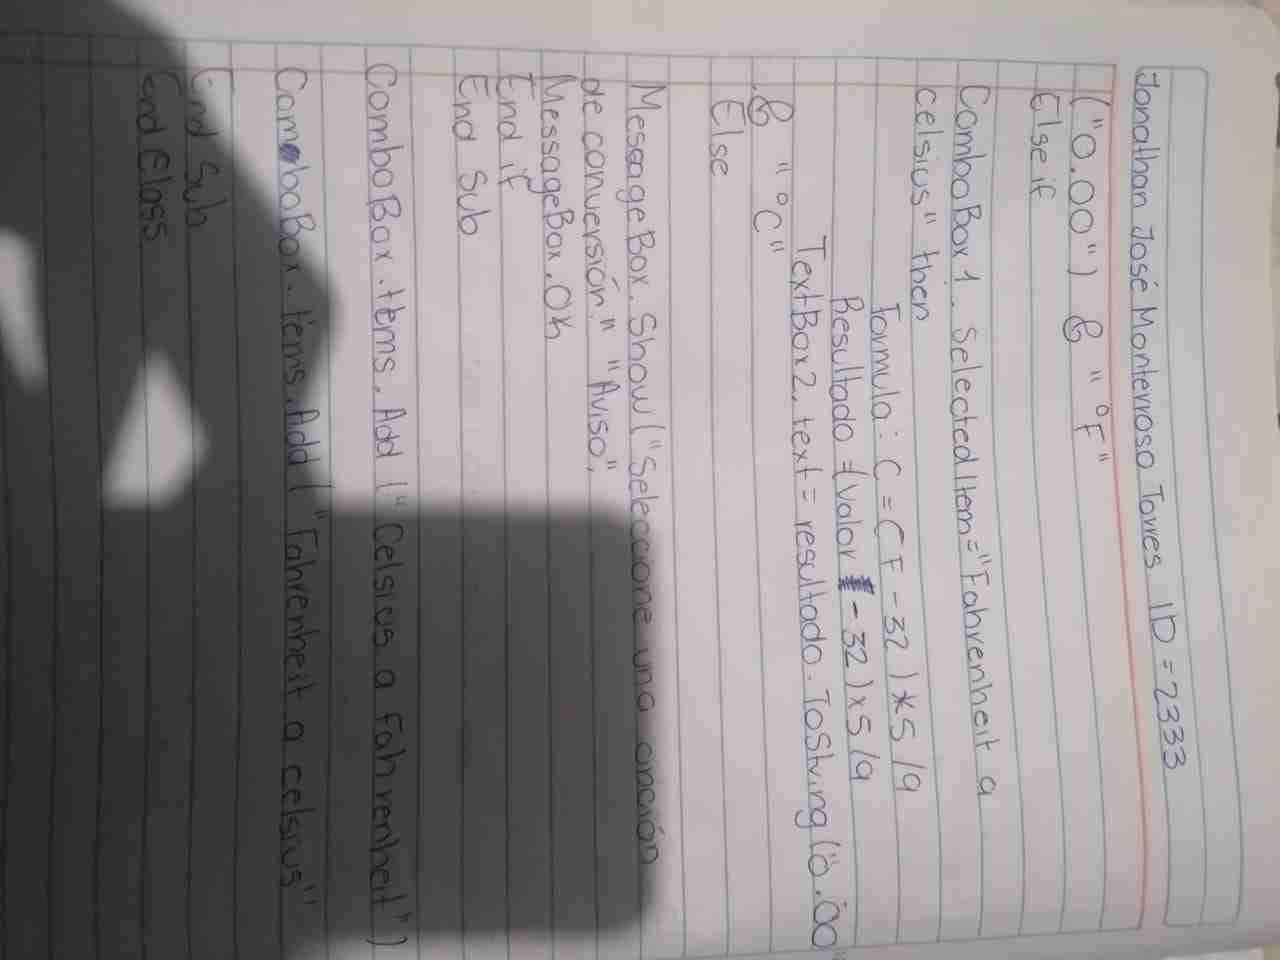 Jonathan José Monterroso Torres ID = 2333
("0.00") & "°F"
Else if
ComboBox1. SelectedItem="Fahrenheit a
celsius" then
Formula: C = (F - 32) * 5 / 9
Resultado = (valor - 32) x 5 / 9
TextBox2. text = resultado. ToString ("0.00"
& "°C"
Else
MessageBox. Show ("Seleccione una opción
de conversión." "Aviso",
MessageBox. Ok
End if
End Sub
ComboBox. tems. Add ("Celsius a Fahrenheit")
ComboBox. tems. Add ("Fahrenheit a celsius"
End Sub
End Class